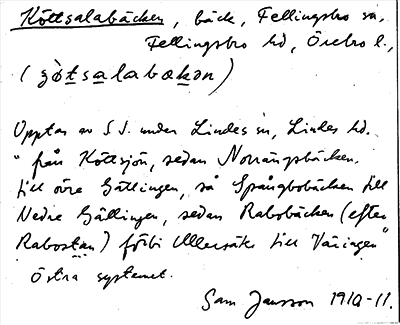 Köttsalabäcken, bäck, Fellingsbro sn,
Fellingsbro hd, Örebro l.,
Upptar av S J. under Lindes sn, Lindes hd.
"från Köttsjön, sedan Norrängsbäcken,
till övre Gällingen, så Spångbobäcken till
Nedre Gällingen, sedan Rabobäcken (efter
Rabostan) förbi Ullersäter till Väringen"
Östra systemet.
Sam Jansson 1910-11.